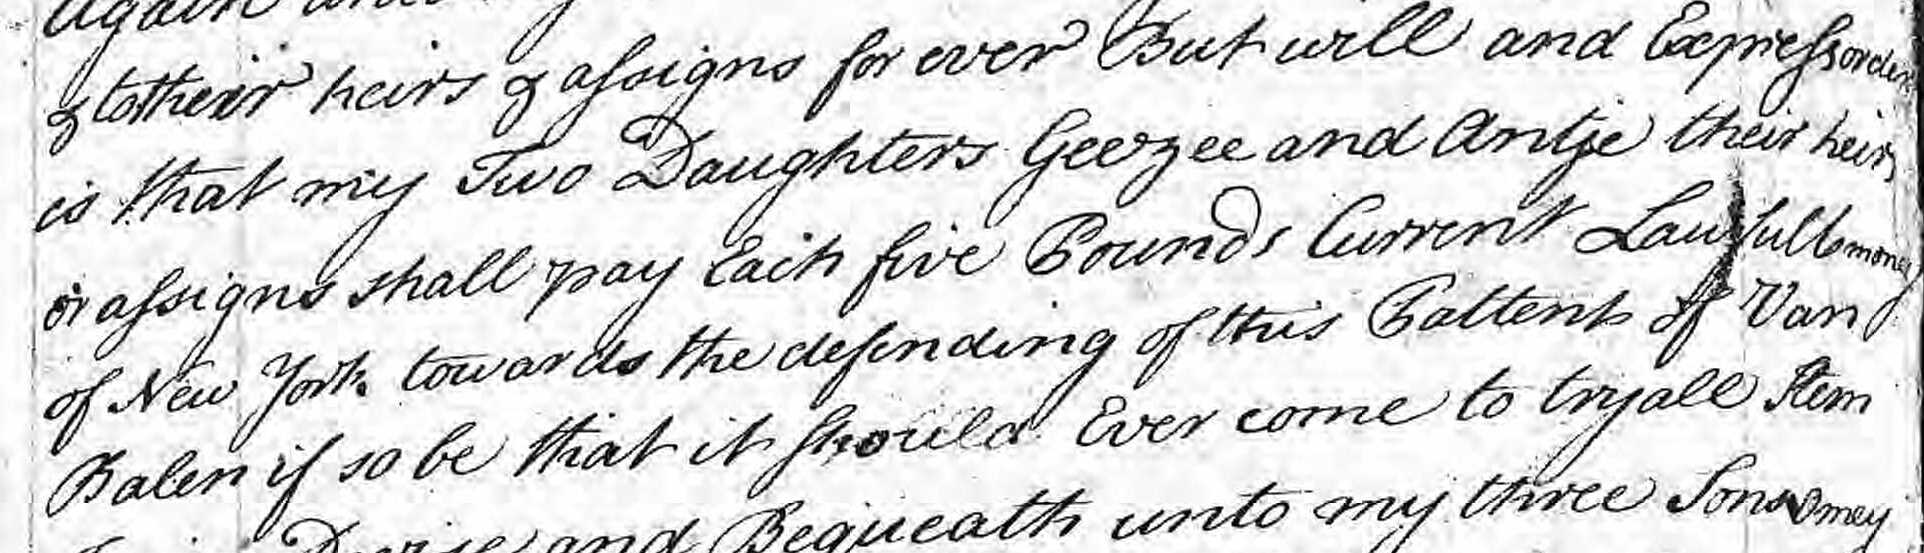 Again
& to their heirs & assigns for ever But will and Express order
is that my Two Daughters Geerzee and Antje their heirs
or assigns shall pay Each five Pounds Current Lawfull money
of New York towards the defending of this Pattent of Van
Balen if so be that it should Ever come to tryall Item
Devise and Bequeath unto my three Sons